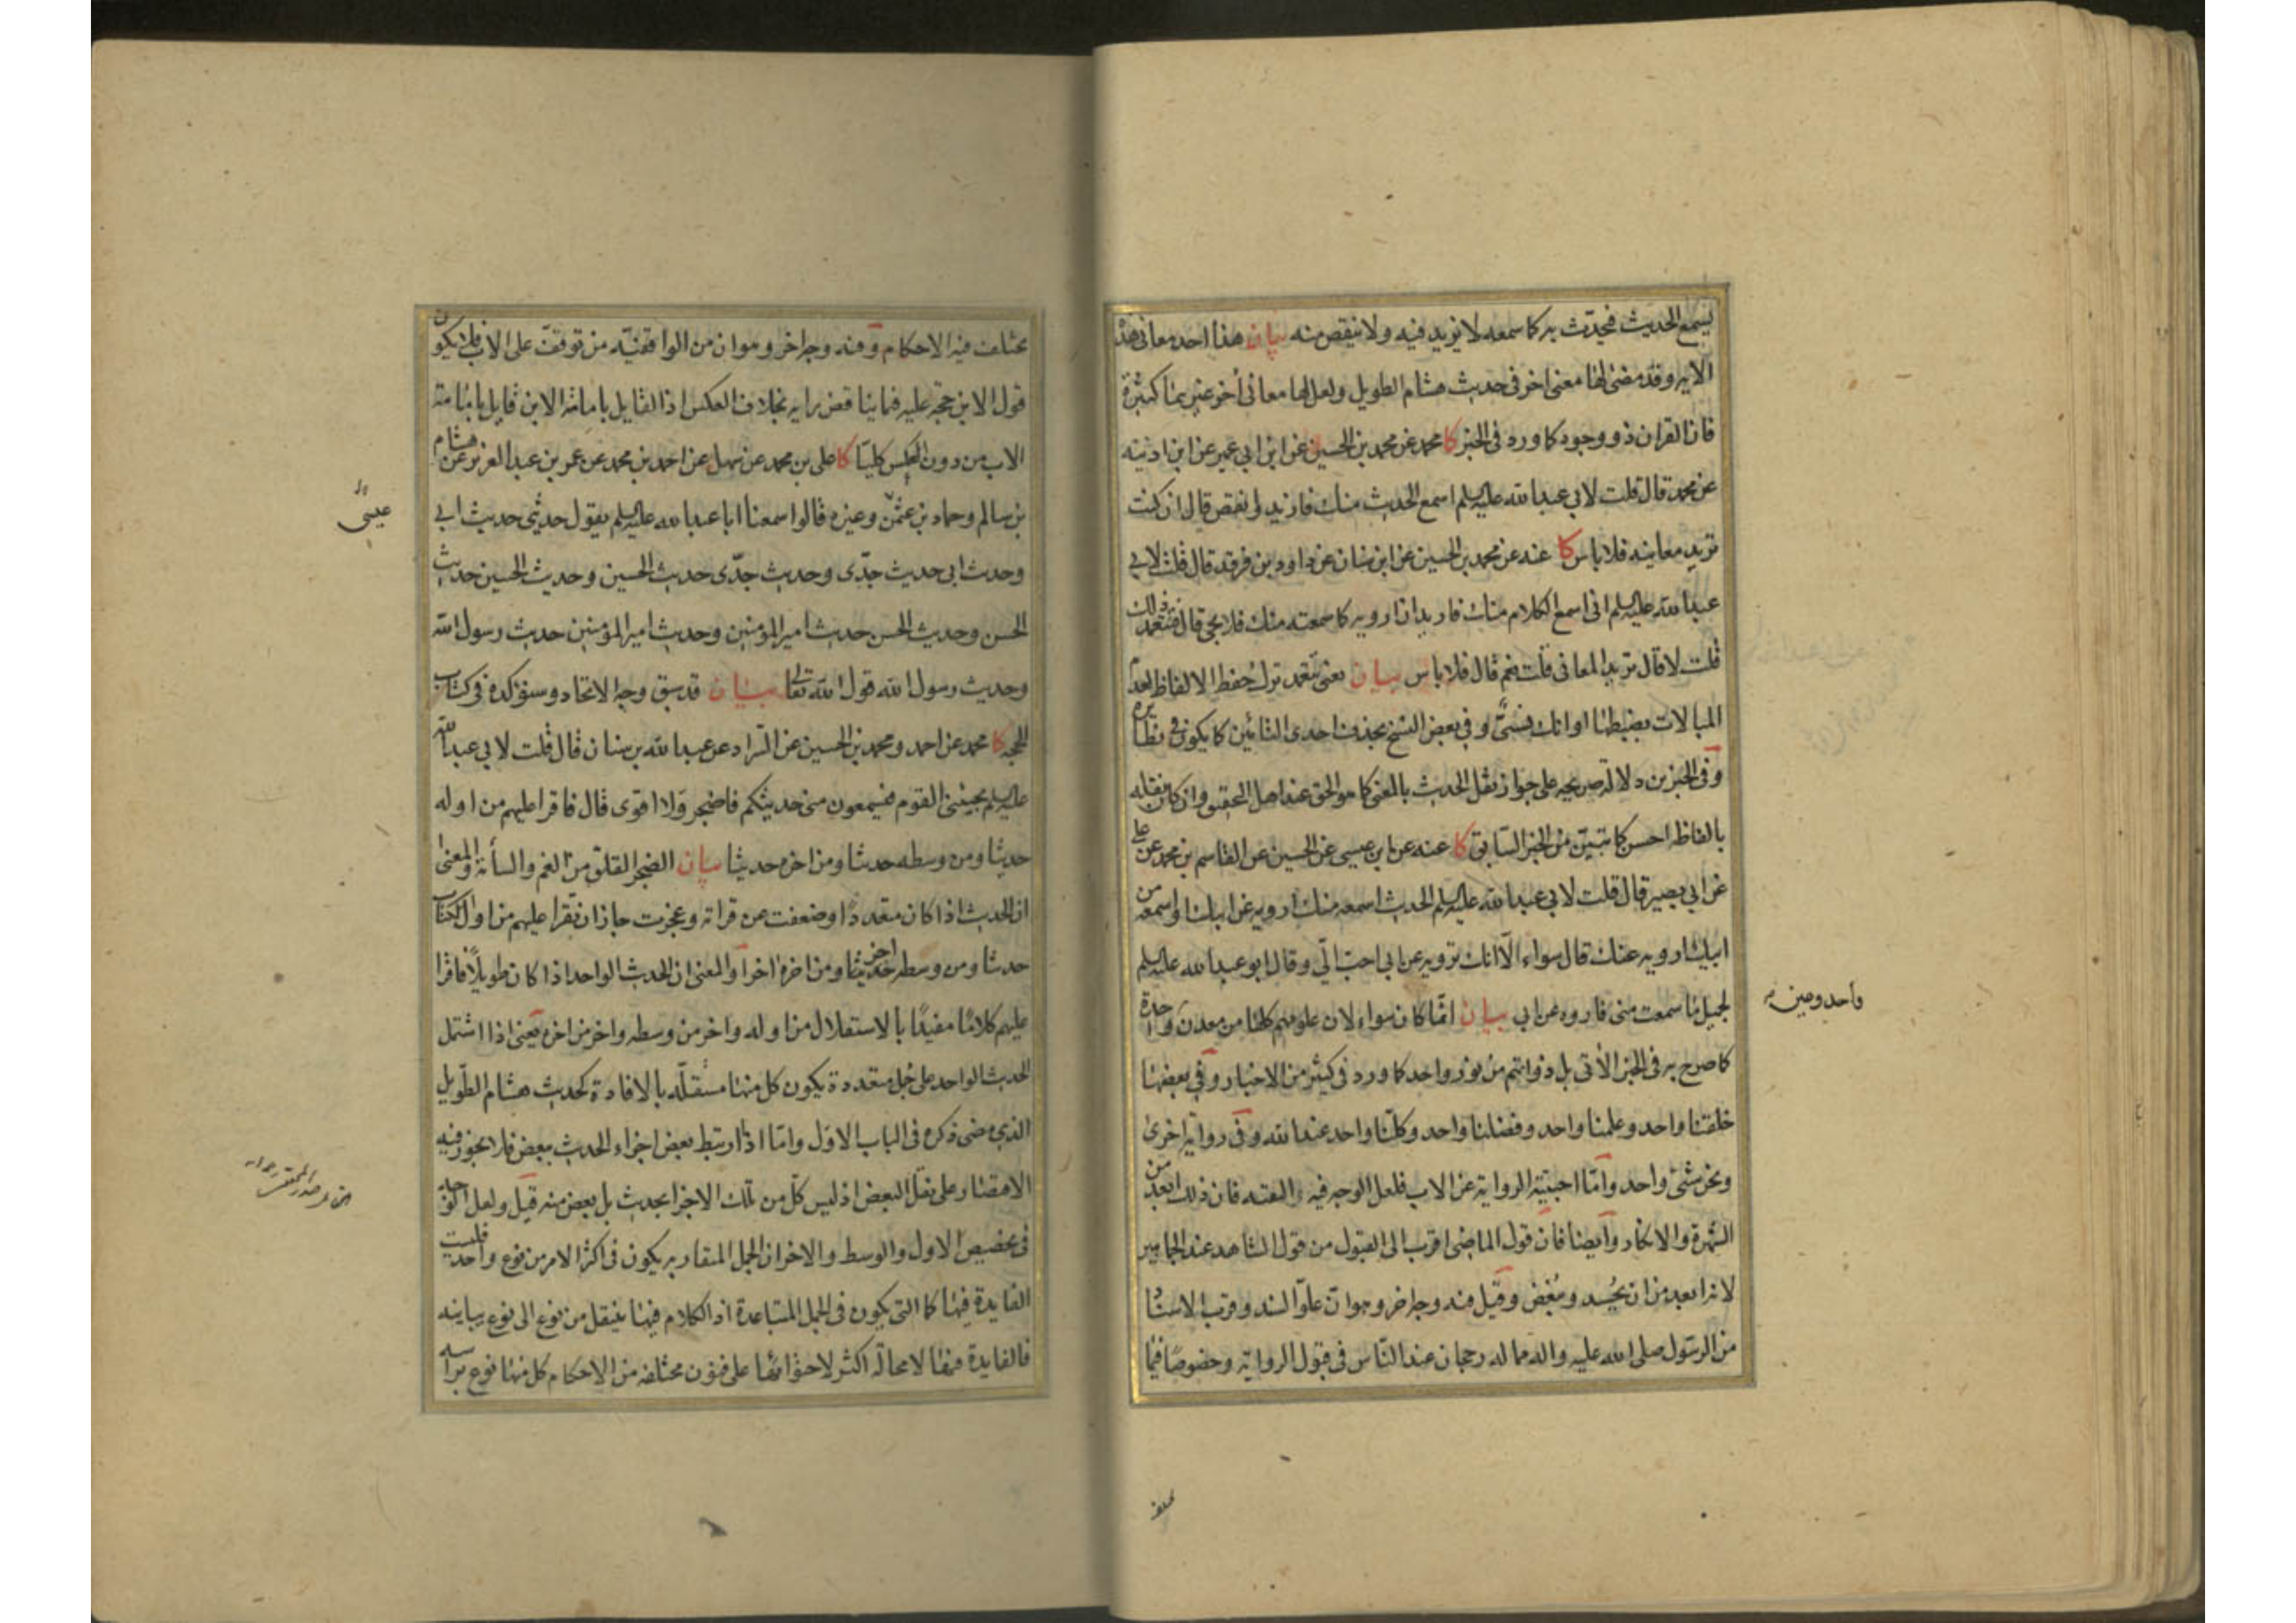 يسمع الحديث فيحدّث به كما سمعه لا يزيد فيه ولا ينقص منه بيان هذا احد معانى هذه
الاية وقد مضى لها معنى اخر فى حديث هشام الطويل ولعل لها معانى أخر غيرهما كثيرة
فان القران ذو وجوه كما ورد فى الخبر كا محمد عن محمد بن الحسين عن ابن ابي عمير عن ابن اذينه
عن محمد قال قلت لابي عبد الله عليه السلم اسمع الحديث منك فازيد وانقص قال ان كنت
تريد معانيه فلا باس كا عنه عن محمد بن الحسين عن ابن سنان عن داود بن فرقد قال قلت لابي
عبد الله عليه السلم انى اسمع الكلام منك فاريد ان ارويه كما سمعته منك فلا يجئ قال فتتعمد ذلك
قلت لا قال تريد المعانى قلت نعم قال فلا باس بيان يعنى تتعمد ترك حفظ الالفاظ لعدم
المبالات بضبطها او انك تنسى وفى بعض النسخ بحذف احدى التائين كما يكون فى نظايره
وفى الخبرين دلالة صريحه على جواز نقل الحديث بالمعنى كما هو الحق عند اهل التحقيق وان كان نقله
بالفاظه احسن كما تبيّن من الخبر السّابق كا عنه عن ابن عيسى عن الحسين عن القاسم بن محمد عن على
عن ابي بصير قال قلت لابي عبد الله عليه السلم الحديث اسمعه منك ارويه عن ابيك او اسمعه من
ابيك ارويه عنك قال سواء الّا انك ترويه عن ابى احبّ الىّ وقال ابو عبد الله عليه السلم
لجميل ما سمعت منى فاروه عن ابى بيان انّما كان سواء لان علومهم كلها من معدن واحدة
كما صرح به فى الخبر الأتى بل ذواتهم من نور واحد كما ورد فى كثير من الاخبار وفى بعضها
خلقنا واحد وعلمنا واحد وفضلنا واحد وكلّنا واحد عند الله وفى رواية اخرى
ونحن شئ واحد وامّا احبيّة الرواية عن الاب فلعل الوجه فيه التقية فان ذلك ابعد من
الشهرة والانكار وأيضا فان قول الماضى اقرب الى القبول من قول الشاهد عند الجماهير
لانه ابعد من ان يُحسد ويُبغض وقيل فيه وجه اخر وهو ان علوّ السند وقرب الاسناد
من الرسول صلى الله عليه واله مما له رجحان عند النّاس فى قبول الرواية وخصوصًا فيما
مختلف
يختلف فيه الاحكام وفيه وجه اخر وهو ان من الواقفيّة من توقّف على الاب فلا يكون
قول الابن حجّة عليه فيما يناقض رايه بخلاف العكس اذ القايل بامامة الابن قايل بامامة
الاب من دون العكس كليّا كا على بن محمد عن سهل عن احمد بن محمد عن عمر بن عبد العزيز عن هشام
بن سالم وحماد بن عثمن وغيره قالوا سمعنا ابا عبد الله عليه السلم يقول حديثى حديث ابي
وحديث ابى حديث جدّى وحديث جدّى حديث الحسين وحديث الحسين حديث
الحسن وحديث الحسن حديث امير المؤمنين وحديث امير المؤمنين حديث رسول الله
وحديث رسول الله قول الله تعالى بيان قد سبق وجه الاتحاد وسنؤكده فى كتاب
الحجه كا محمد عن احمد ومحمد بن الحسين عن السّراد عن عبد الله بن سنان قال قلت لابي عبد الله
عليه السلم يجيئنى القوم فيسمعون منى حديثكم فاضجر ولا اقوى قال فاقرا عليهم من اوله
حديثا ومن وسطه حديثا ومن اخره حديثا بيان الضجر القلق من الغم والسأمة والمعنى
ان الحديث اذا كان متعددًا وضعفت عن قراته وعجزت جاز ان تقرا عليهم من اول الكتاب
حديثا ومن وسطه حديثا اخر ومن اخره اخر او المعنى ان الحديث الواحد اذا كان طويلًا فاقرا
عليهم كلامًا مفيدًا بالاستقلال من اوله واخر من وسطه واخر من اخره يعنى اذا اشتمل
الحديث الواحد على جُمل متعددة يكون كل منها مستقلّه بالافادة كحديث هشام الطّويل
الذى مضى ذكره فى الباب الاوّل وامّا اذا ارتبط بعض اجزاء الحديث ببعض فلا يجوز فيه
الاقتصار على نقل البعض اذ ليس كلّ من تلك الاجزا بحديث بل بعض منه قيل ولعل الوجه
فى تخصيص الاول والوسط والاخر ان الجمل المتقاربه يكون فى اكثر الامر من نوع واحد فليست
الفايدة فيها كما التى يكون فى الجمل المتباعدة اذ الكلام فيها ينتقل من نوع الى نوع يباينه
فالفايدة فيها لا محالة اكثر لاحتوائها على فنون مختلفه من الاحكام كل منها نوع براسه